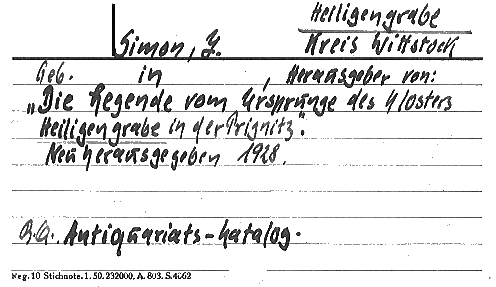 Heiligengrabe
Simon, J. Kreis Wittstock
Geb. in , Herausgeber von:
„Die Legende vom Ursprunge des Klosters
Heiligengrabe in der Prignitz".
Neu herausgegeben 1928.
Antiquariats-Katalog.
Reg. 10 Stichnote. 1. 50. 232000. A. 803. S. 4662